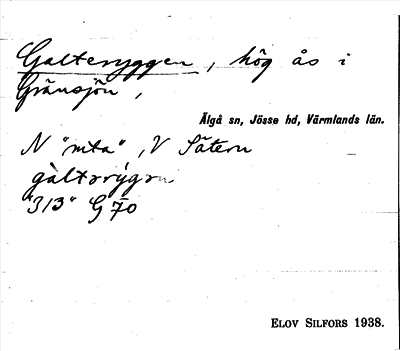 Galteryggen, hög ås i
Gränsjön,
Älgå sn, Jösse hd, Värmlands län.
N "mta", V Sätern
gàltərýgən
"313" G 70
ELOV SILFORS 1938.